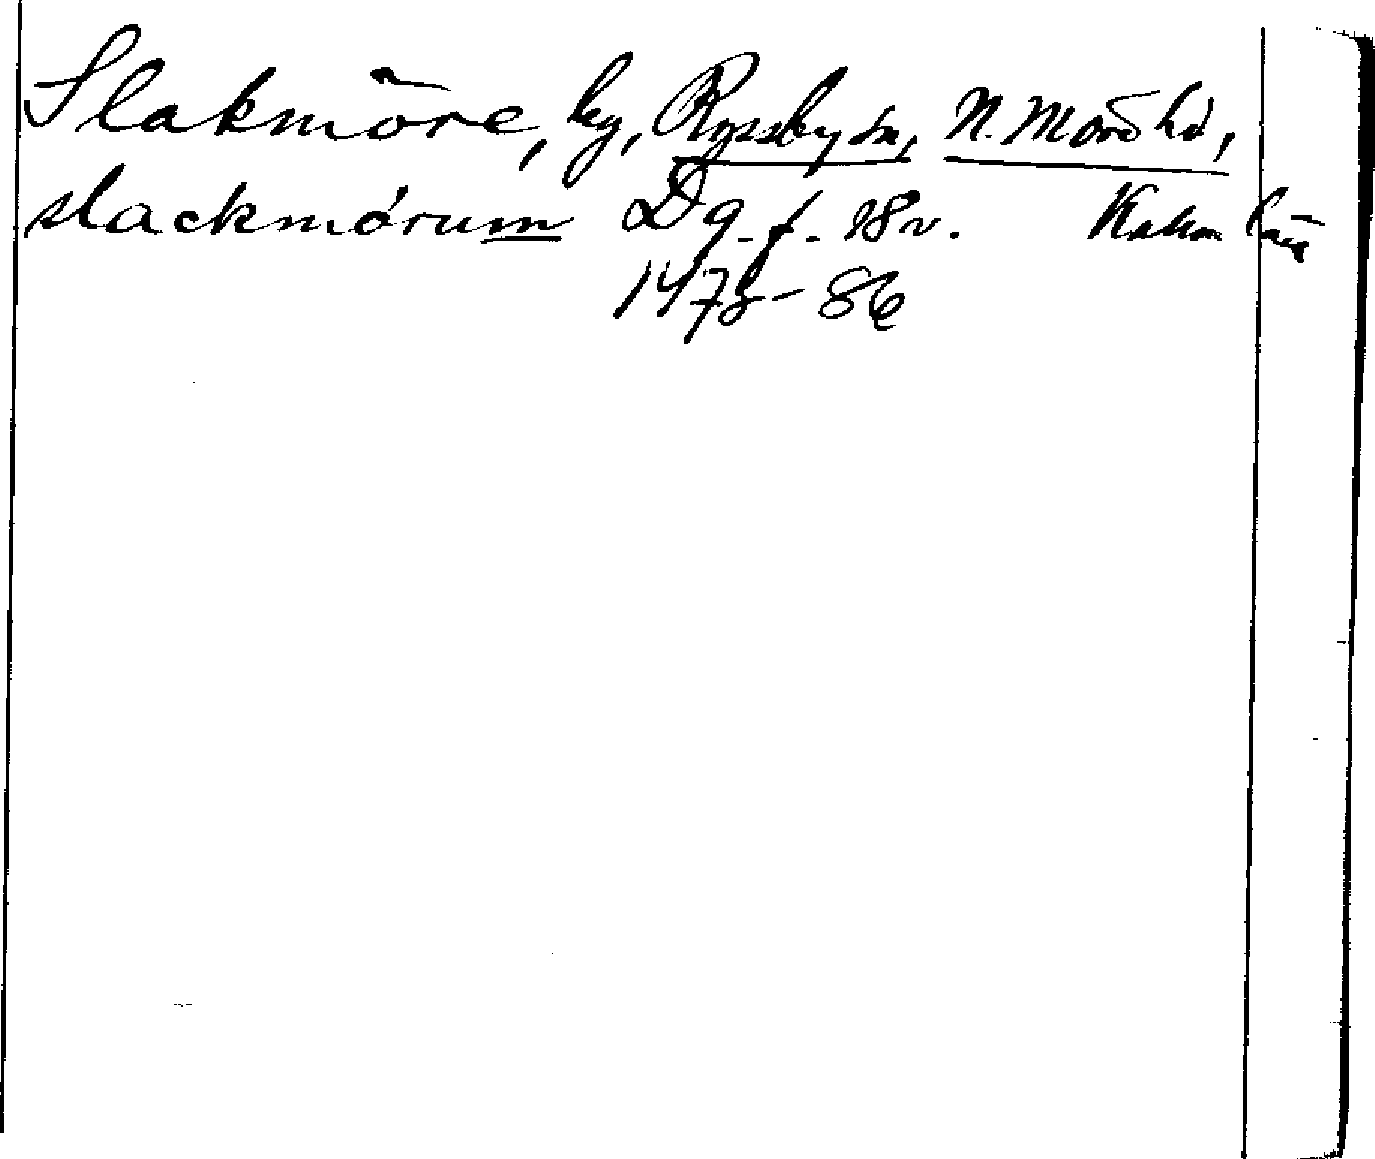 Slakmöre, by, Ryssby sn, N. Möre hd,
slackmórum D9. f. 18v. Kalm län
1475-86